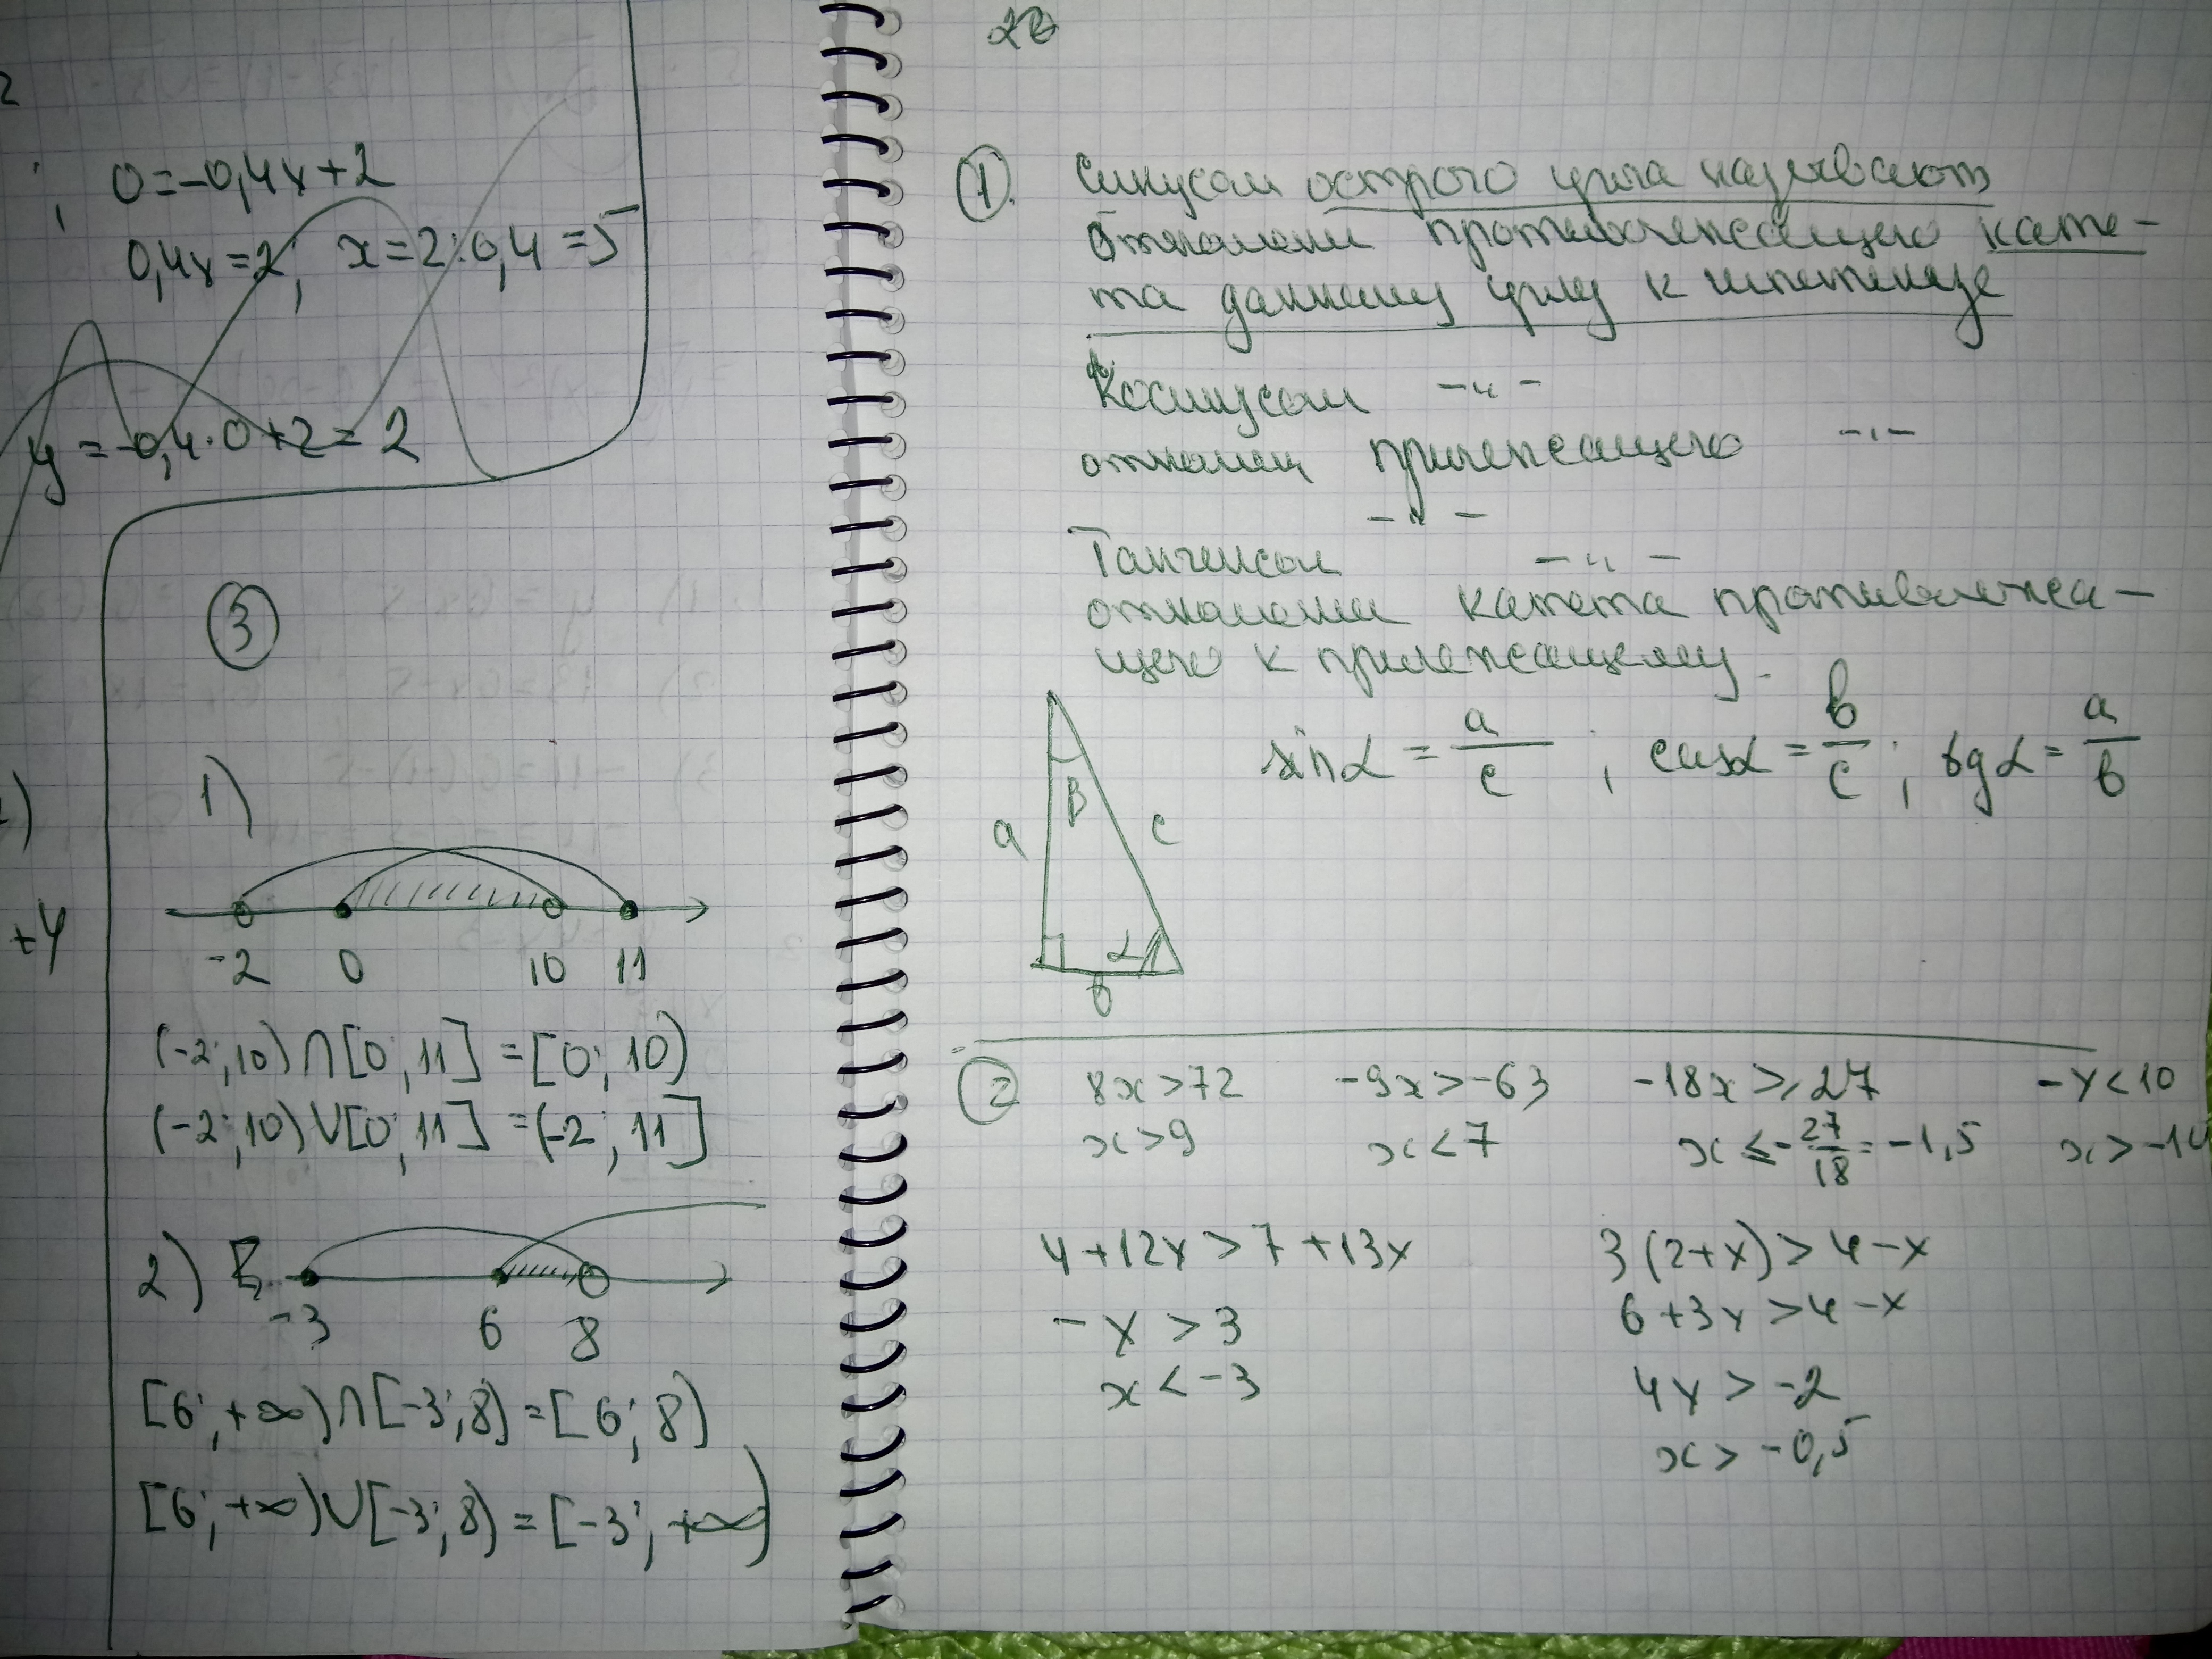 0=-0,4x+2
0,4x=2; x=2:0,4=5
y=-0,4·0+2=2
③
1)
+4
-2 0 10 11
(-2;10)∩[0;11]=[0;10)
(-2;10)∪[0;11]=(-2;11]
2)
-3 6 8
[6;+∞)∩[-3;8)=[6;8)
[6;+∞)∪[-3;8)=[-3;+∞)
①. Синусом острого угла называют
отношении противолежащего кате-
та данному углу к гипотенузе
Косинусом -"-
отношении прилежащего -"-
-"-
Тангенсом -"-
отношении катета противолежа-
щего к прилежащему.
sinα = a/c ; cosα = b/c ; tgα = a/b
a β c
α
b
② 8x>72 -9x>-63 -18x⩾27 -x<10
x>9 x<7 x≤-27/18=-1,5
4+12x>7+13x 3(2+x)>4-x
-x>3 6+3x>4-x
x<-3 4x>-2
x>-0,5